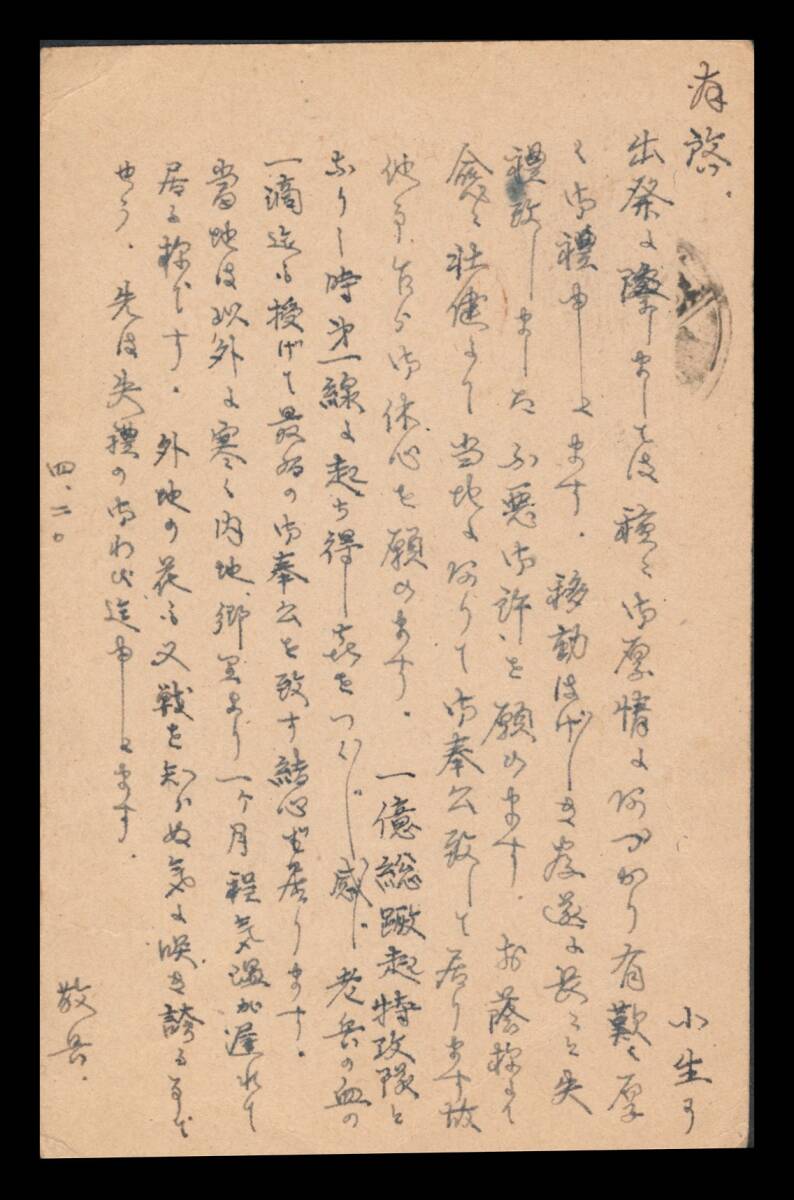 拝啓.
小生の
出発に際しましては種々御厚情にあづかり有難く厚
く御禮申上ます. 移動はげしき為遂に長々と失
禮致しました不悪御許を願ひます. お蔭様にて
愈々壮健にて当地にありて御奉公致して居ります故
他事乍ら御休心を願ひます. 一億総蹶起特攻隊と
なりし時第一線に起ち得し喜をつくづく感じ老兵の血の
一滴迄も授げて最后の御奉公を致す結心で居ります.
當地は以外に寒く内地、郷里より一ケ月程気温が遅れて
居る様です. 外地の花も又戦を知らぬ気に咲き誇る事で
せう. 先は失禮の御わび迄申上ます.
四、二〇
敬具.